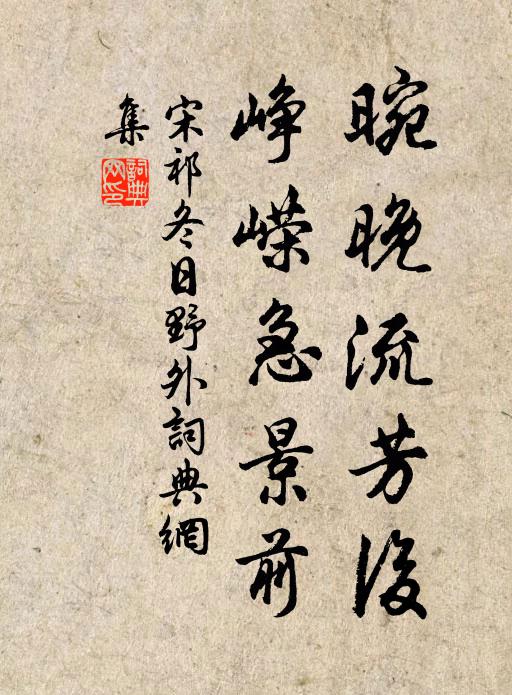 晼晚流芳後
峥嶸急景前
宋祁冬日野外詞典網
集
詞典網印